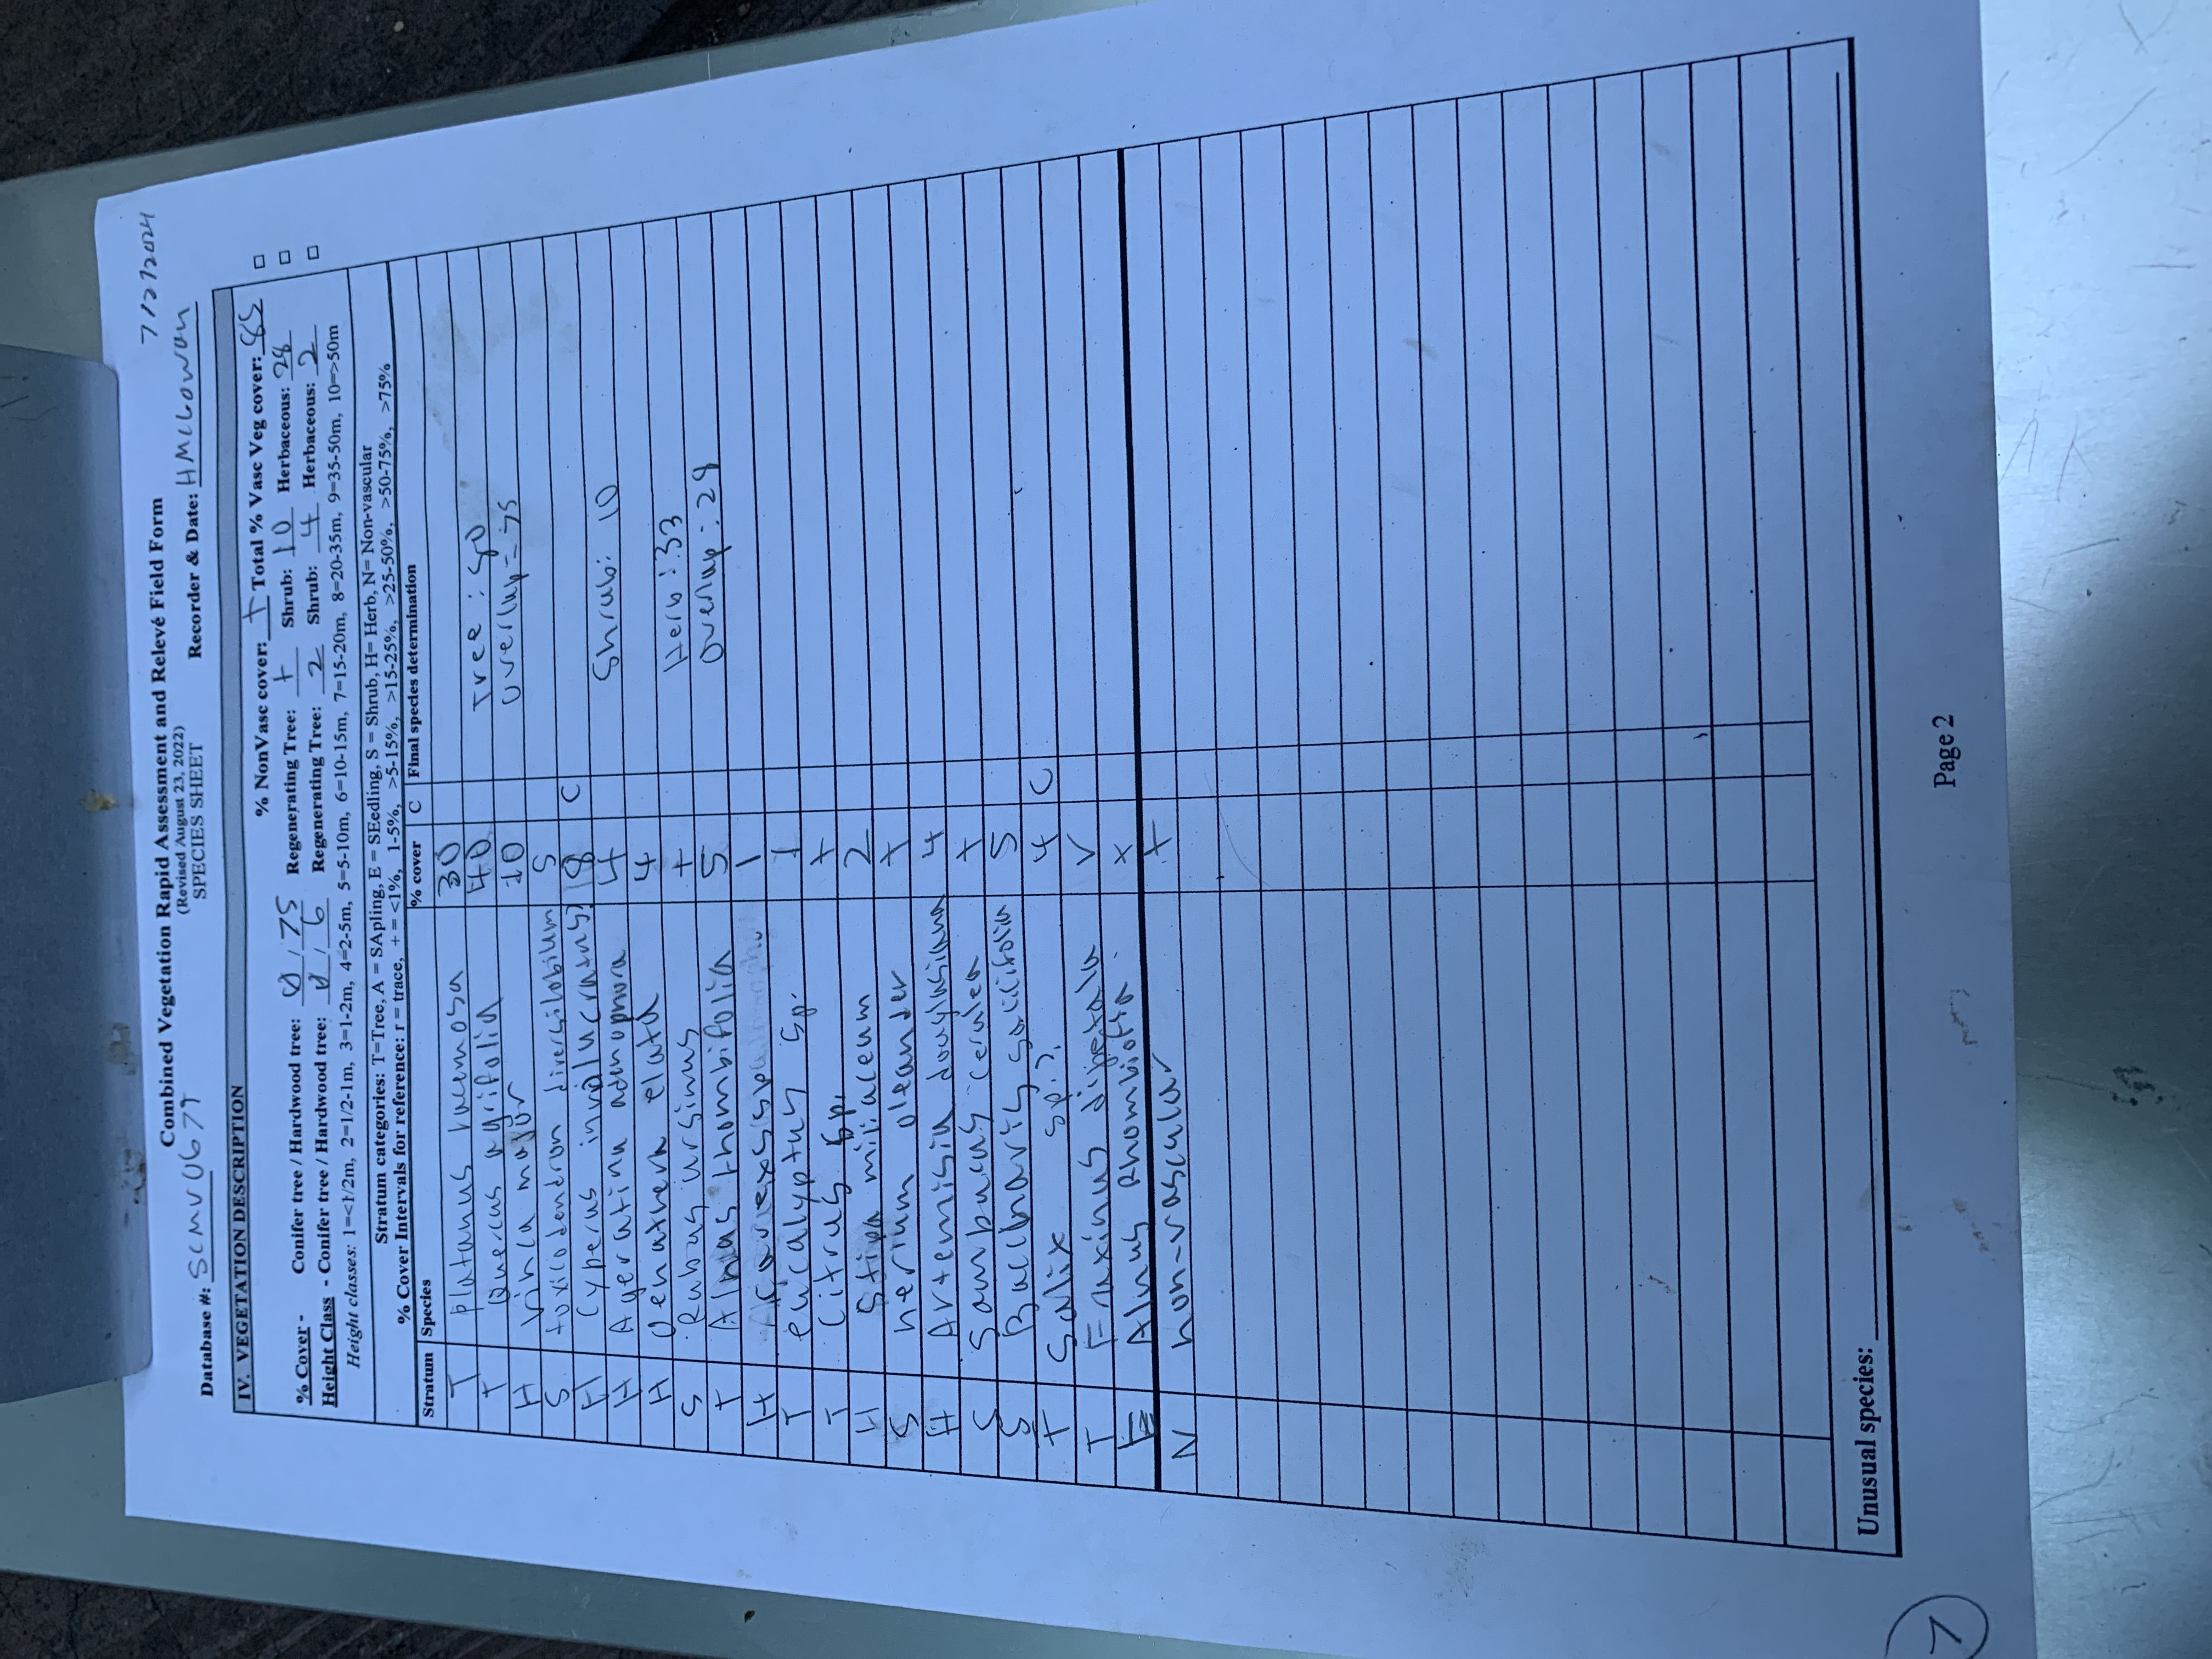 7/27/2024
Combined Vegetation Rapid Assessment and Relevé Field Form
(Revised August 23, 2022)
SPECIES SHEET
Database #: SCMV0677 Recorder & Date: HMcGowan
IV. VEGETATION DESCRIPTION
% NonVasc cover: + Total % Vasc Veg cover: 85
% Cover - Conifer tree / Hardwood tree: 0 / 75 Regenerating Tree: + Shrub: 10 Herbaceous: 28
Height Class - Conifer tree / Hardwood tree: 0 / 6 Regenerating Tree: 2 Shrub: 4 Herbaceous: 2
Height classes: 1=<1/2m, 2=1/2-1m, 3=1-2m, 4=2-5m, 5=5-10m, 6=10-15m, 7=15-20m, 8=20-35m, 9=35-50m, 10=>50m
Stratum categories: T=Tree, A = SApling, E = SEedling, S = Shrub, H= Herb, N= Non-vascular
% Cover Intervals for reference: r = trace, + = <1%, 1-5%, >5-15%, >15-25%, >25-50%, >50-75%, >75%
Stratum Species % cover C Final species determination
T platanus racemosa 30
T Quercus agrifolia 40 Tree:
H Vinca major 10 overlap - 75
S toxicodendron diversilobum 5
H Cyperus involucratus C
H Ageratina adenophora 4 Shrub: 10
H Oenathera elata 4
S Rubus ursinus + Herb: 33
T Alnus rhombifolia 5 overlap: 28
H 1
T eucalyptus sp. 1
T Citrus sp. +
H Stipa miliaceum 2
S nerium oleander +
H Artemisia douglasiana 4
S Sambucus cerulea +
S Baccharis salicifolia 5
T Salix sp.? 4 C
T Fraxinus dipetala
E Alnus Rhombiofia +
N non-vascular +
Unusual species:
Page 2
7